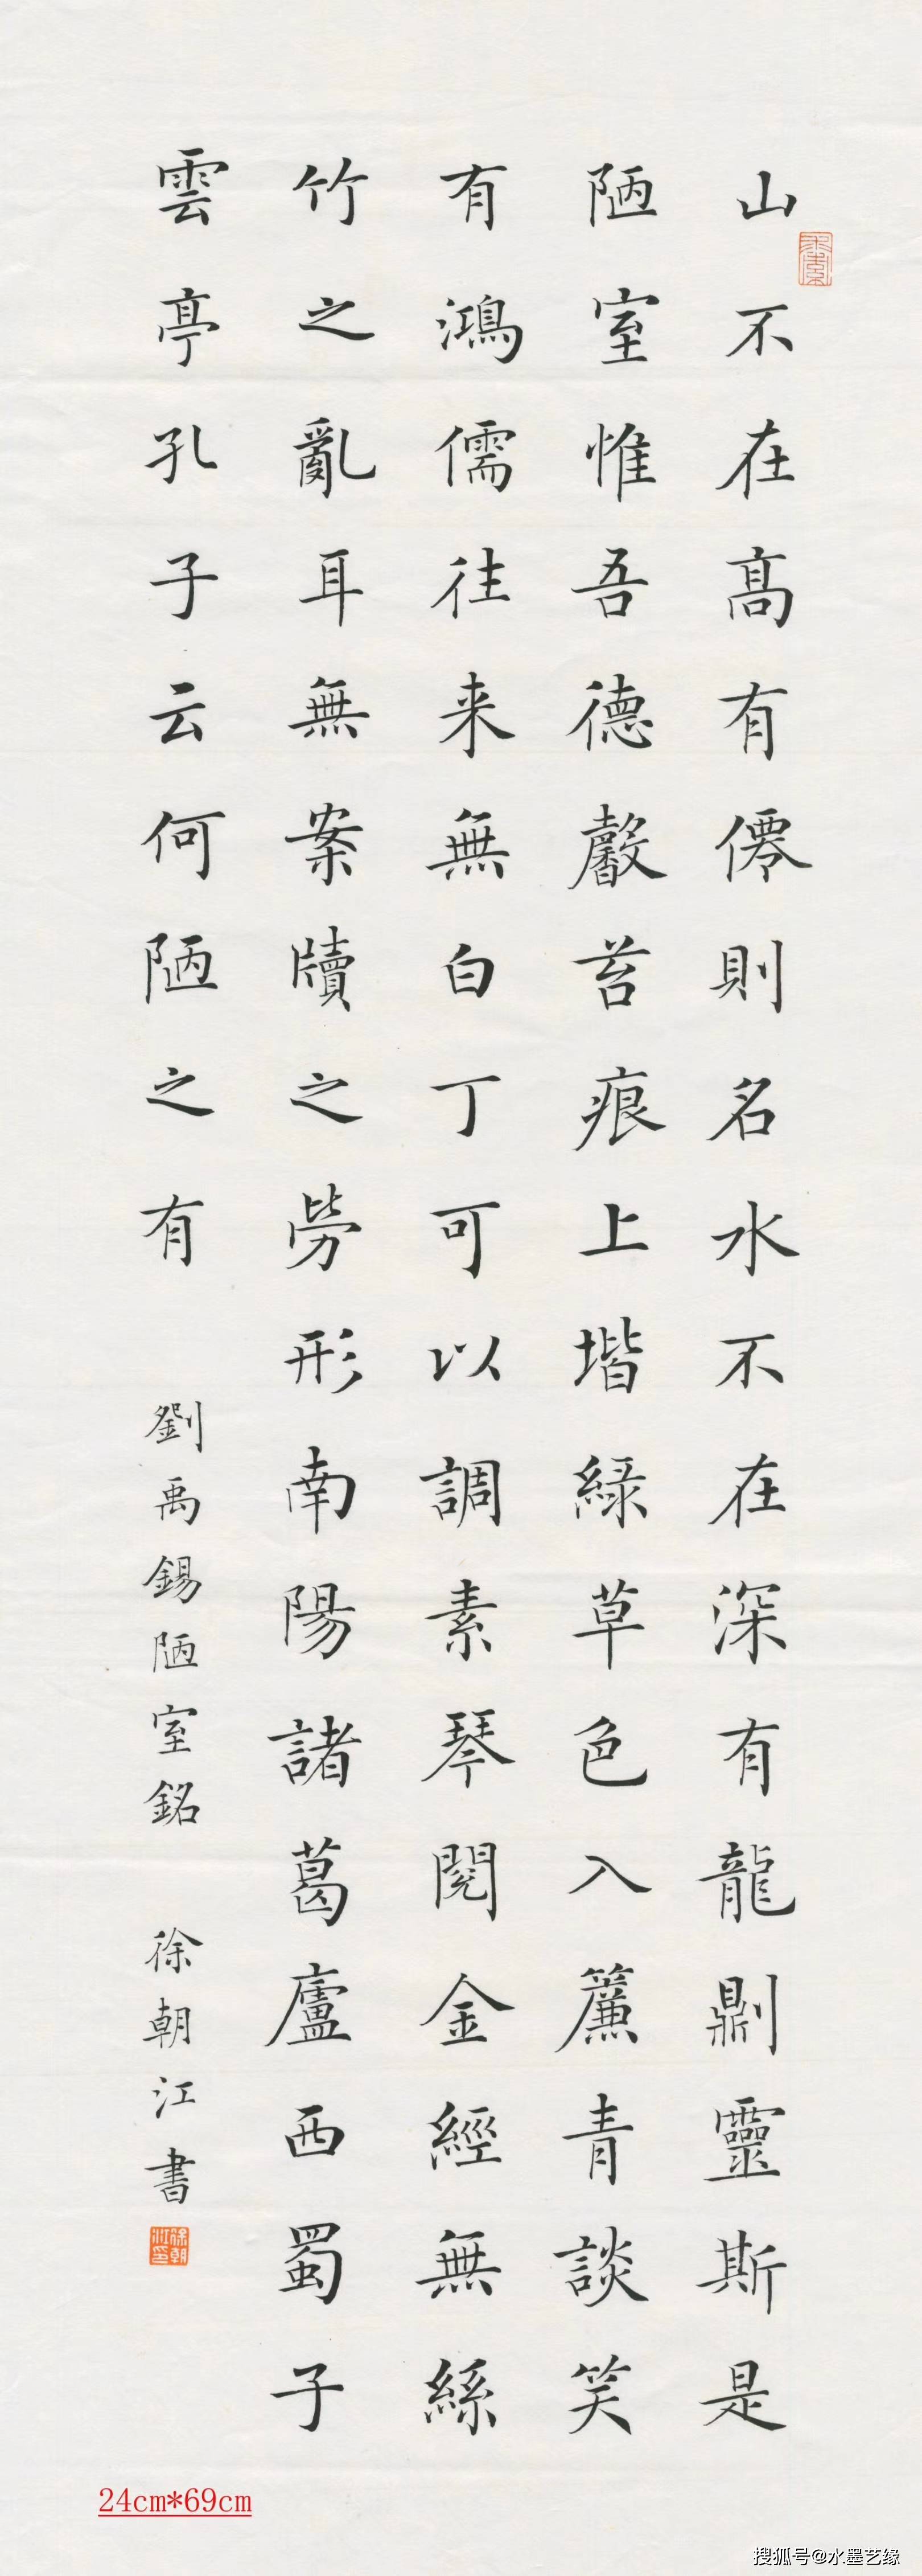 山不在高有僊則名水不在深有龍剿靈斯是
陋室惟吾德馨苔痕上堦緑草色入簾青談笑
有鴻儒往来無白丁可以調素琴閲金經無絲
竹之亂耳無案牘之勞形南陽諸葛廬西蜀子
雲亭孔子云何陋之有
劉禹錫陋室銘
徐朝江書
徐朝江印
24cm*69cm
搜狐号@水墨艺缘